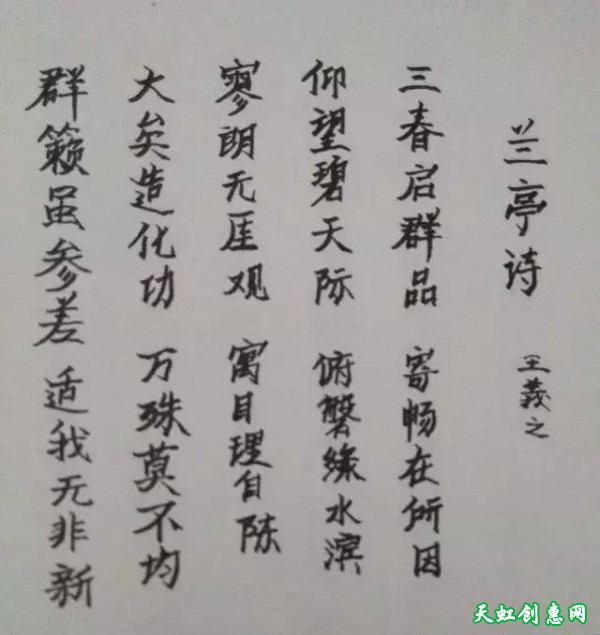 兰亭诗 王羲之
三春启群品 寄畅在所因
仰望碧天际 俯磐绿水滨
寥朗无厓观 寓目理自陈
大矣造化功 万殊莫不均
群籁虽参差 适我无非新
天虹创惠网